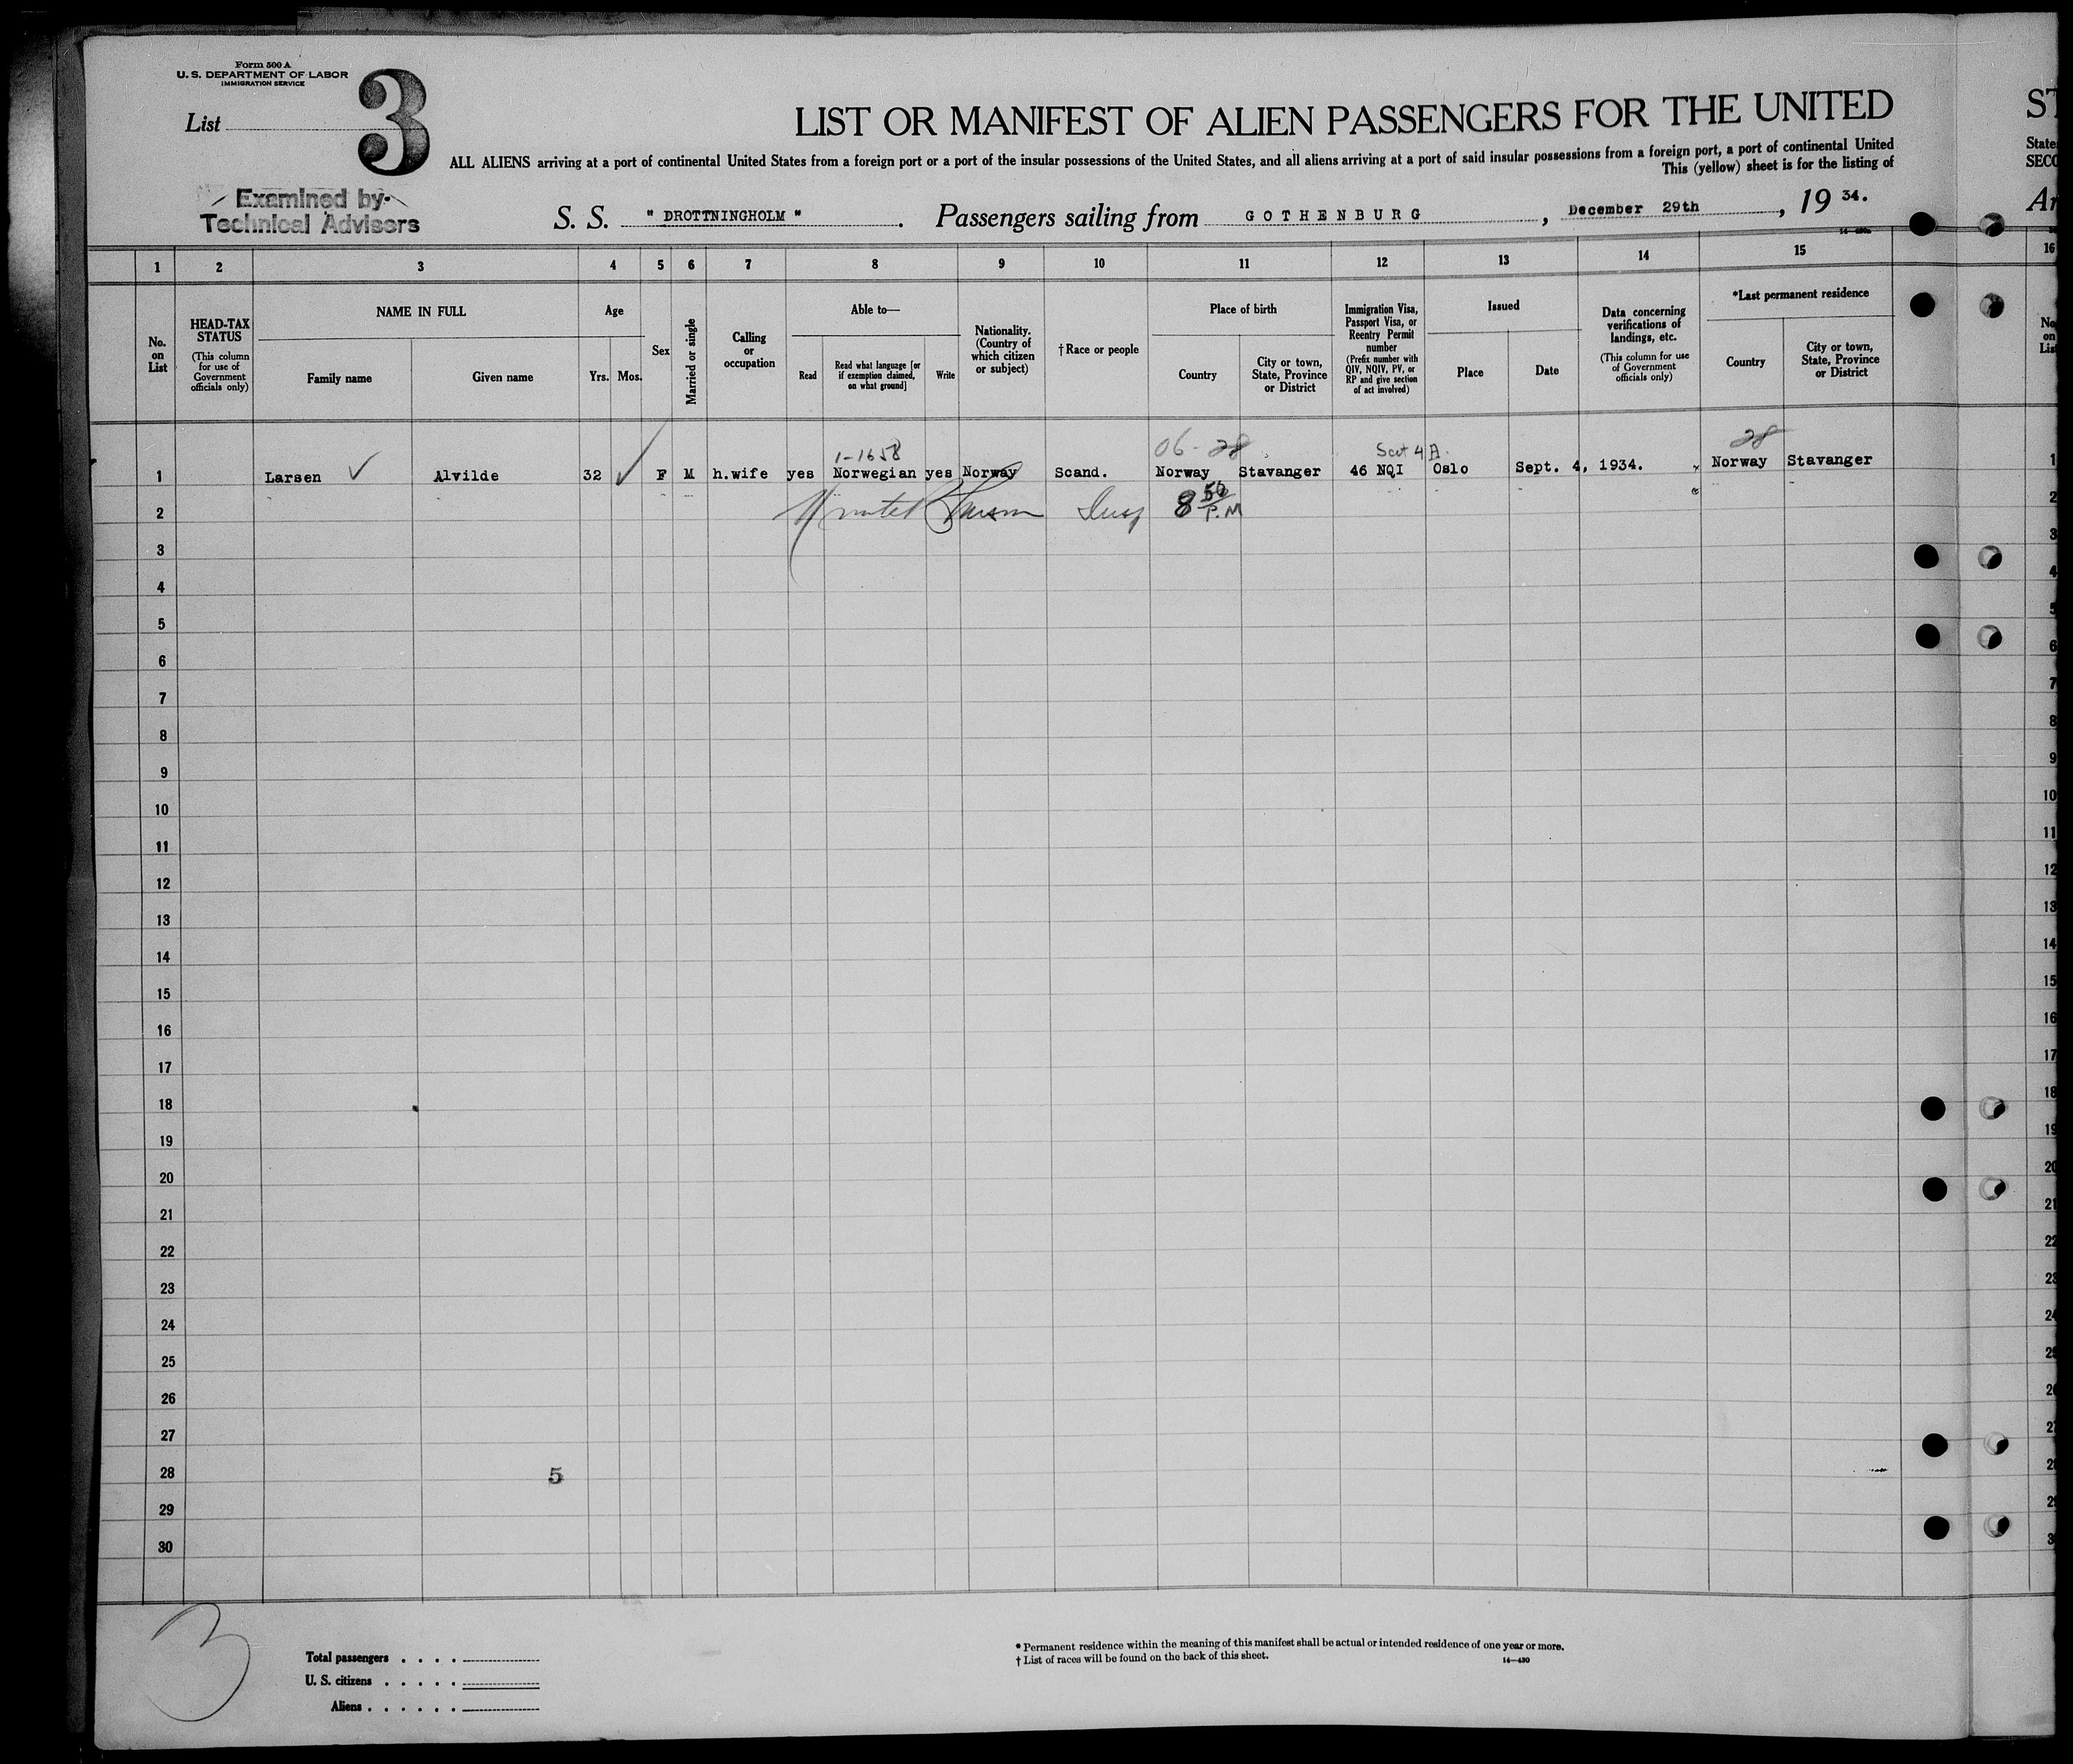 Form 500 A
U. S. DEPARTMENT OF LABOR
IMMIGRATION SERVICE
List
3
LIST OR MANIFEST OF ALIEN PASSENGERS FOR THE UNITED
ST
ALL ALIENS arriving at a port of continental United States from a foreign port or a port of the insular possessions of the United States, and all aliens arriving at a port of said insular possessions from a foreign port, a port of continental United
State
This (yellow) sheet is for the listing of
SECO
Examined by
Technical Advisers
S. S. " DROTTNINGHOLM ". Passengers sailing from GOTHENBURG, December 29th, 19 34.
Ar
1 2 3 4 5 6 7 8 9 10 11 12 13 14 15 16
No. on List
HEAD-TAX STATUS
(This column for use of Government officials only)
NAME IN FULL
Family name
Given name
Age
Yrs. Mos.
Sex
Married or single
Calling or occupation
Able to—
Read
Read what language [or if exemption claimed, on what ground]
Write
Nationality. (Country of which citizen or subject)
†Race or people
Place of birth
Country
City or town, State, Province or District
Immigration Visa, Passport Visa, or Reentry Permit number
(Prefix number with QIV, NQIV, PV, or RP and give section of act involved)
Issued
Place
Date
Data concerning verifications of landings, etc.
(This column for use of Government officials only)
*Last permanent residence
Country
City or town, State, Province or District
No. on List
1-1658 06-28 Sect 4 A. 28
1 Larsen Alvilde 32 F M h.wife yes Norwegian yes Norway Scand. Norway Stavanger 46 NQI Oslo Sept. 4, 1934. Norway Stavanger 1
2 Insp 8 50 P.M 2
3 3
4 4
5 5
6 6
7 7
8 8
9 9
10 10
11 11
12 12
13 13
14 14
15 15
16 16
17 17
18 18
19 19
20 20
21 21
22 22
23 23
24 24
25 25
26 26
27 27
28 5 28
29 29
30 30
3
Total passengers . . . .
U. S. citizens . . . . .
Aliens . . . . . .
* Permanent residence within the meaning of this manifest shall be actual or intended residence of one year or more.
† List of races will be found on the back of this sheet.
14—430